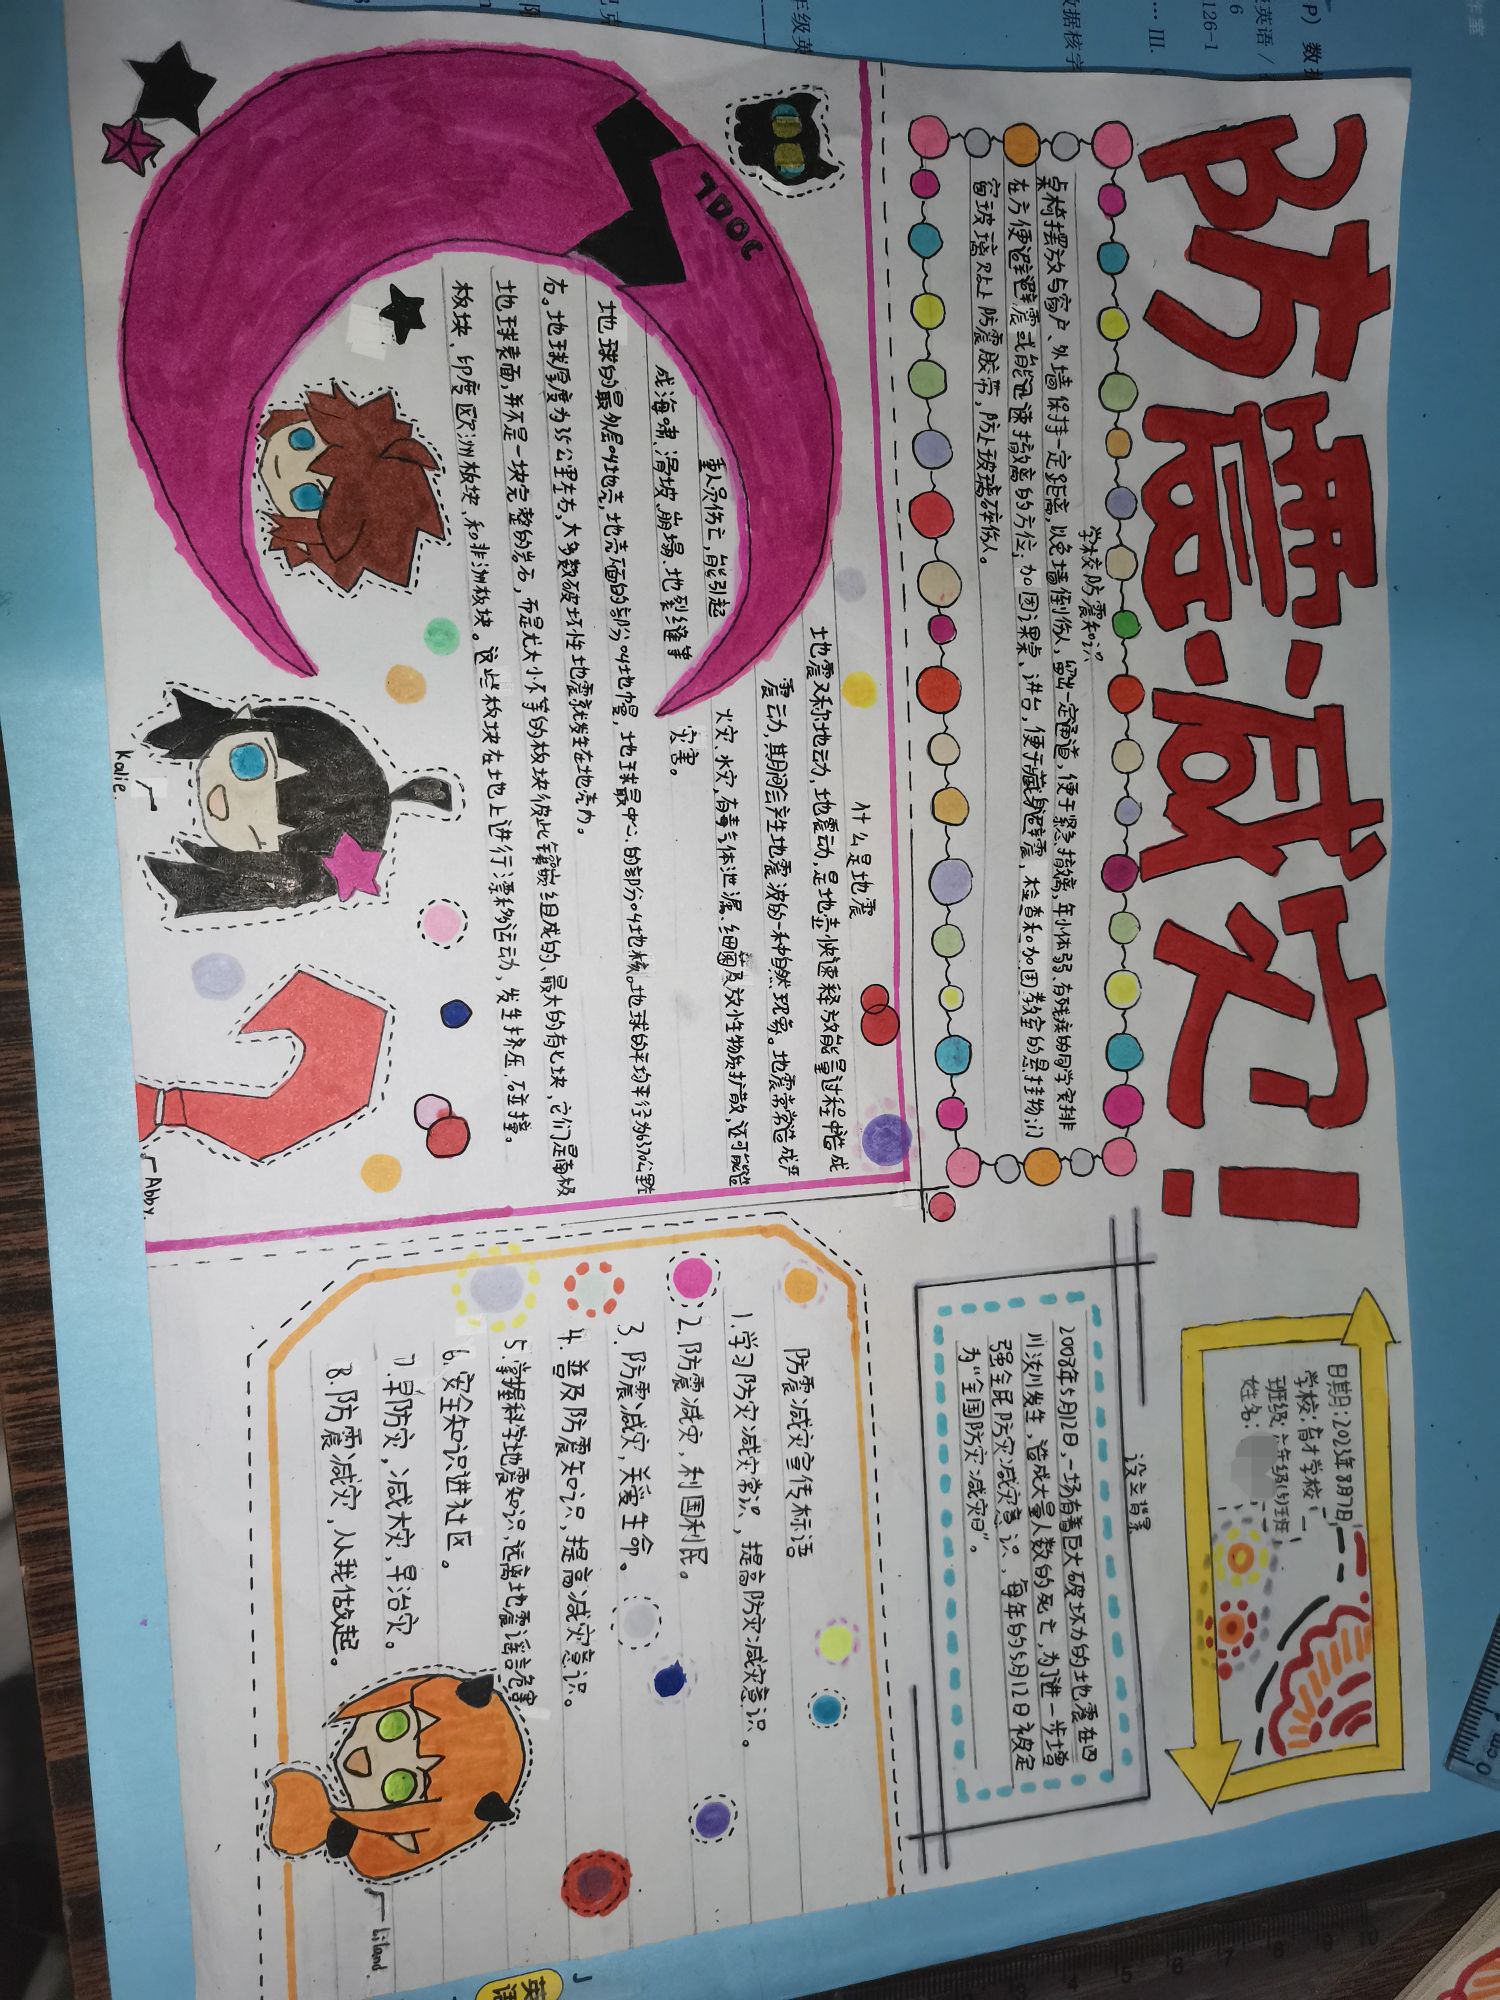 防震·减灾!
日期:2023年8月7日
学校:育才学校
班级:六年级(5)班
姓名:
学校防震知识
桌椅摆放与窗户、外墙保持一定距离,以免墙倒伤人,留出一定通道,便于紧急撤离,年小体弱、有残疾的同学安排
在方便避震或能迅速撤离的方位;加固课桌、讲台,便于藏身避震,检查和加固教室的悬挂物;门
窗玻璃贴上防震胶带,防止玻璃碎伤人。
设立背景
2008年5月12日,一场有着巨大破坏力的地震在四
川汶川发生,造成大量人数的死亡,为了进一步增
强全民防灾减灾意识,每年的5月12日被定
为"全国防灾减灾日"。
什么是地震
地震又称地动、地震动,是地壳快速释放能量过程中造成
震动,其期间会产生地震波的一种自然现象。地震常常造成严
重人员伤亡,能引起火灾、水灾,有毒气体泄漏、细菌及放性物质扩散,还可能造
成海啸、滑坡、崩塌、地裂缝等灾害。
地球的最外层叫地壳,地壳面的部分叫地幔,地球最中心的部分叫地核。地球的平均半径为6370公里左
右。地球厚度为35公里左右,大多数破坏性地震就发生在地壳内。
地球表面,并不是一块完整的岩石,而是尤大小不等的板块彼此镶嵌组成的、最大的有七块,它们是南极
板块、印度欧洲板块、和非洲板块。这些板块在地上进行漂移运动,发生挤压,碰撞。
防震减灾宣传标语
1.学习防灾减灾常识,提高防灾减灾意识。
2.防震减灾,利国利民。
3.防震减灾,关爱生命。
4.普及防震知识,提高减灾意识。
5.掌握科学地震知识,远离地震谣言危害
6.安全知识进社区。
7.早防灾,减大灾,早治灾。
8.防震减灾,从我做起。
Kalie.
Abby.
英语